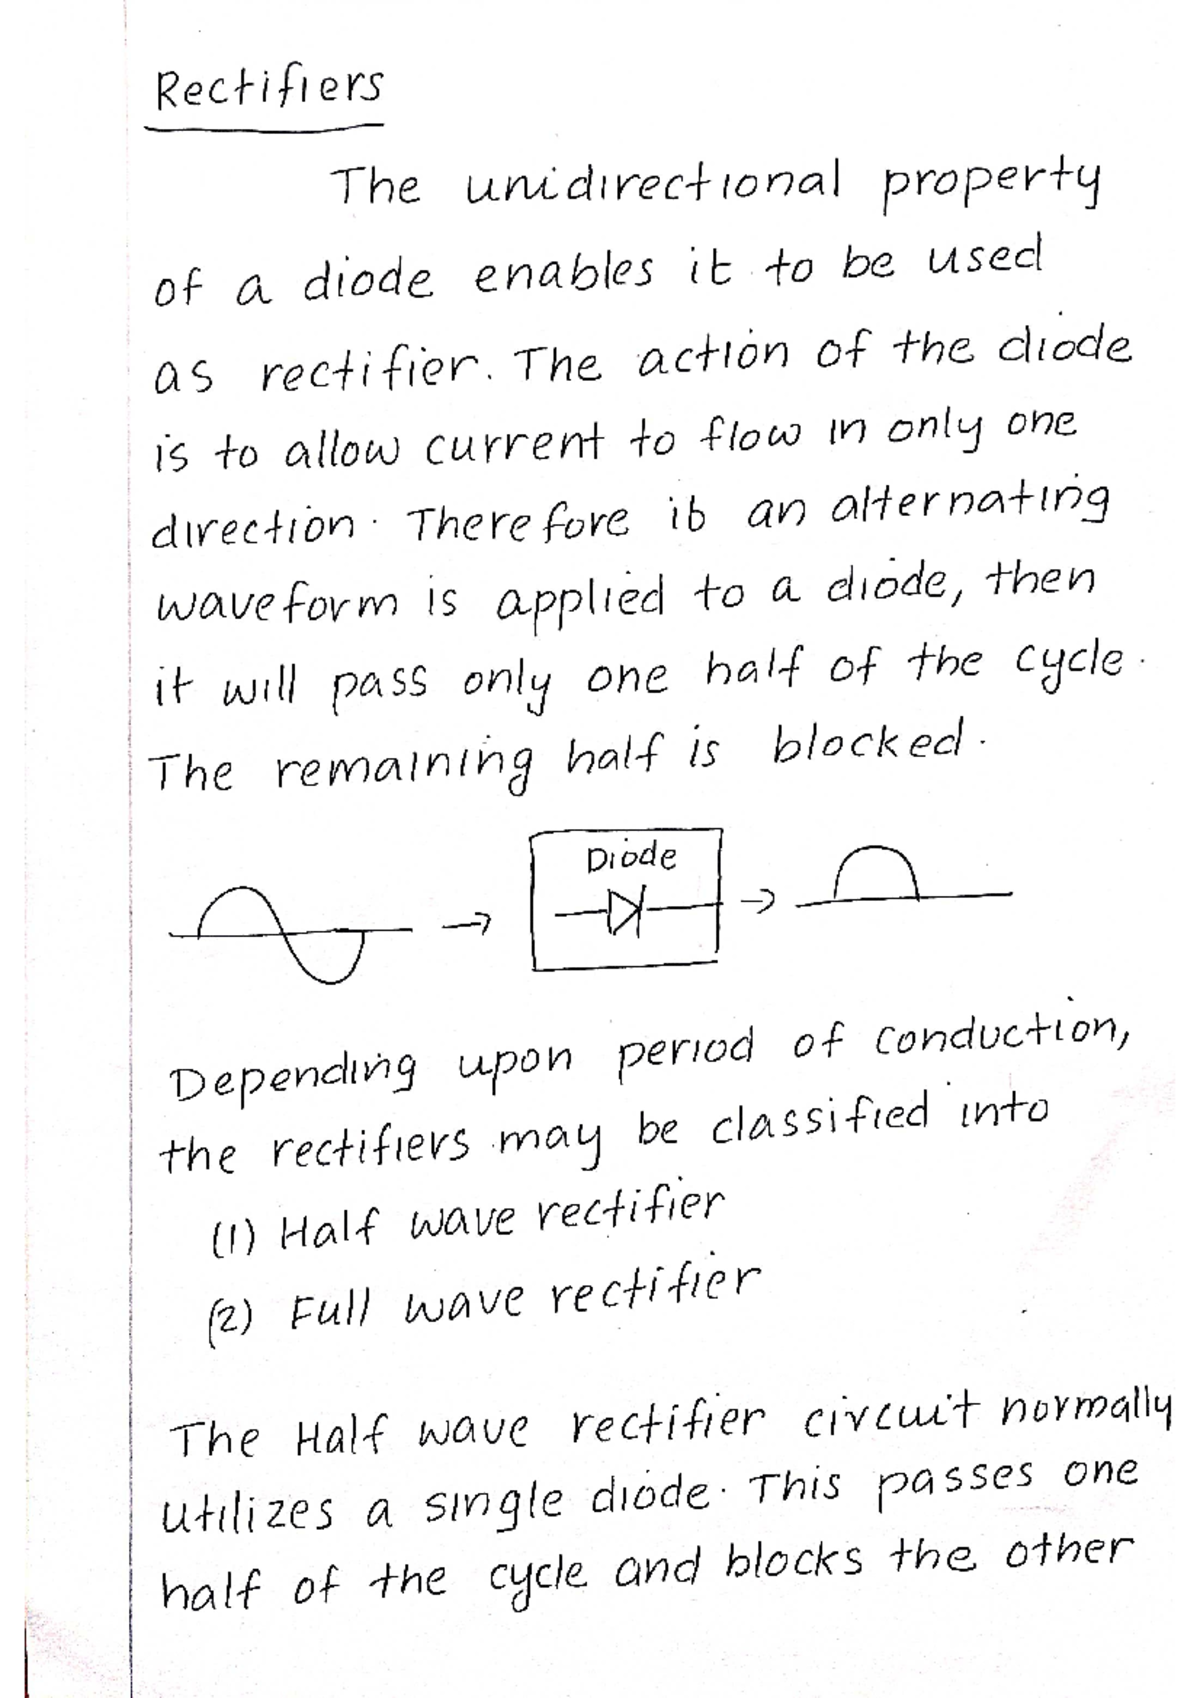 Rectifiers
The unidirectional property
of a diode enables it to be used
as rectifier. The action of the diode
is to allow current to flow in only one
direction. Therefore ib an alternating
waveform is applied to a diode, then
it will pass only one half of the cycle.
The remaining half is blocked.
Diode
Depending upon period of conduction,
the rectifiers may be classified into
(1) Half wave rectifier
(2) Full wave rectifier
The Half wave rectifier circuit normally
utilizes a single diode. This passes one
half of the cycle and blocks the other